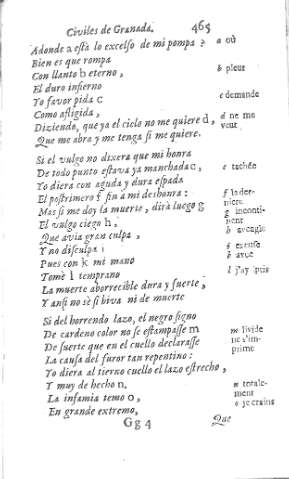 Civiles de Granada. 465
Adonde a està lo excelso de mi pompa? a où
Bien es que rompa
Con llanto b eterno, b pleur
El duro infierno
Yo favor pida c c demande
Como afligida,
Diziendo, que ya el cielo no me quiere d, d ne me
Que me abra y me tenga si me quiere. veut
Si el vulgo no dixera que mi honra
De todo punto estava ya manchada e, e tachée
Yo diera con aguda y dura espada
El postrimero f fin a mi deshonra: f la der-
niere
Mas si me doy la muerte, dirà luego g g inconti-
nent
El vulgo ciego h, h aveugle
Que avia gran culpa,
Y no disculpa i i excuse
Pues con k mi mano k avec
Tomè l temprano l j'ay puis
La muerte aborrecible dura y fuerte,
Y ansi no sè si biva ni de muerte
Si del horrendo lazo, el negro signo
De cardeno color no se estampasse m m livide
De suerte que en el cuello declarasse ne s'im-
prime
La causa del furor tan repentino:
Yo diera al tierno cuello el lazo estrecho,
Y muy de hecho n. n totale-
ment
La infamia temo o, o je crains
En grande extremo,
Gg 4 Que